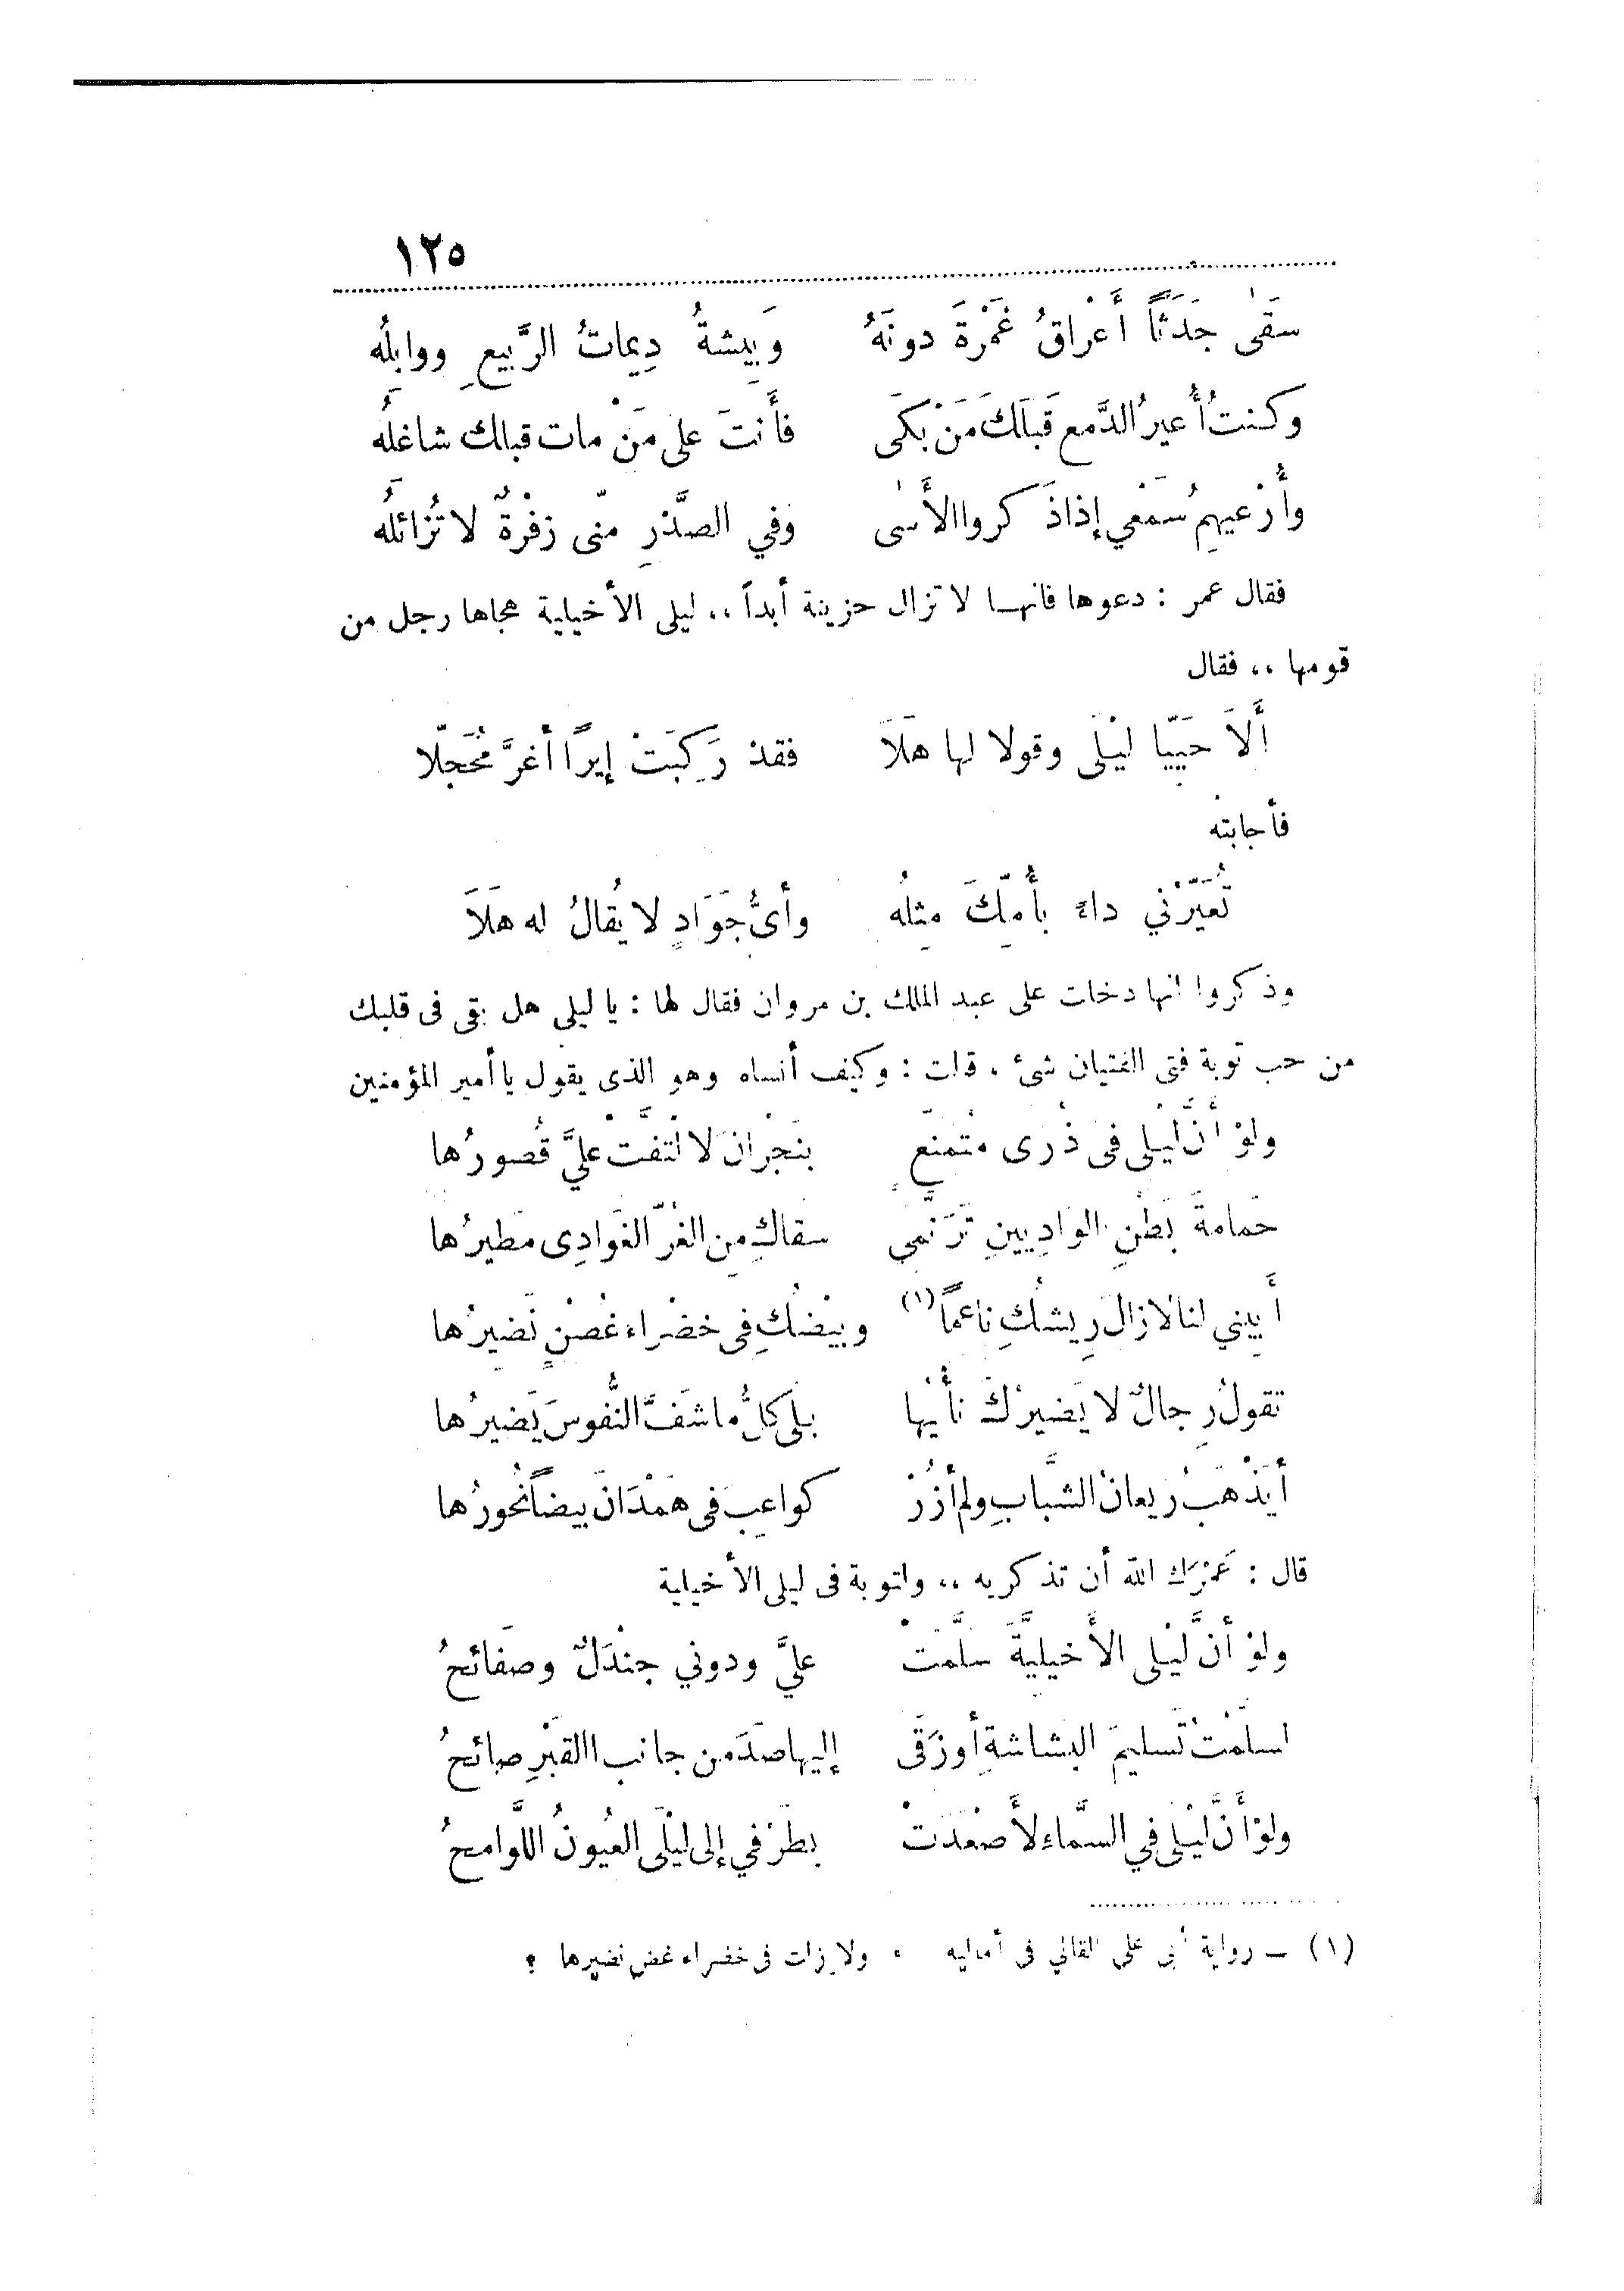 ١٢٥
سقَى جَدَثًا أَعْراقُ غَمْرَةَ دونَهُ وَبِيشةُ دِيماتُ الرَّبيعِ ووابِلُه
وكنتُ أُعيرُ الدَّمعَ قَبلَكَ مَنْ بَكَى فأَنتَ على مَنْ مات قبلك شاغلُه
وأُرْعيهِمُ سَمْعي إذا ذَكروا الأَسى وفي الصَّدْرِ منّى زفْرةٌ لا تُزائلُه
فقال عمر : دعوها فانها لا تزال حزينة أبداً ،، ليلى الأخيلية هجاها رجل من
قومها ،، فقال
أَلاَ حَيِّيَا لَيْلَى وقولا لها هَلاَ فقدْ رَكِبَتْ إيرًا أغرَّ مُحَجّلا
فأجابته
تُعَيّرُني داءً بأُمِّكَ مِثلُه وأىُّ جَوَادٍ لا يُقالُ له هَلاَ
وذكروا انها دخلت على عبد الملك بن مروان فقال لها : يا ليلى هل بقى فى قلبك
من حب توبة فتى الفتيان شئ ، قالت : وكيف أنساه وهو الذى يقول يا أمير المؤمنين
ولوْ أنَّ ليْلى فى ذُرى متمنّعٍ بنَجْرانَ لالْتفَّتْ عليَّ قُصورُها
حَمامةَ بَطْنِ الوَادِيينِ تَرَنَّمى سقاكِ مِن الغُرّ الغَوادِى مَطيرُها
أَبِيني لنا لازالَ رِيشُكِ ناعمًا (١) وبيْضُكِ فى خضْراء غُصْنٍ نَضيرُها
تقولُ رِجالٌ لا يَضيرُكَ نأْيُها بلى كلُّ ما شَفَّ النُّفوسَ يَضيرُها
أيَذْهَبُ رَيعانُ الشَّبابِ ولم أَزُرْ كواعِبَ فى هَمْدَانَ بيضاً نُحورُها
قال : عَمْرَك الله أن تذكريه ،، ولتوبة فى ليلى الأخيلية
ولوْ أنَّ ليْلى الأَخيليَّةَ سلَّمَتْ عليَّ ودوني جنْدَلٌ وصَفائحُ
لسلَّمْتُ تَسليمَ البشاشةِ أو زَقَى إليها صَدًى من جانب االقَبْرِ صائحُ
ولوْ أَنَّ ليْلى في السَّماءِ لأَصْعَدَتْ بطَرْفي إلى ليْلَى العُيونُ اللَّوامحُ
(١) — رواية أبى على القالي فى أماليه ، ولا زلت فى خضراء غض نضيرها ؟